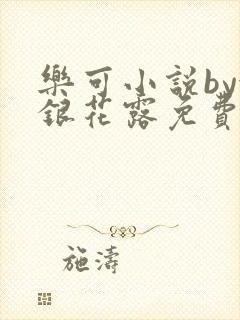 樂可小說by
銀花露免費
施濤